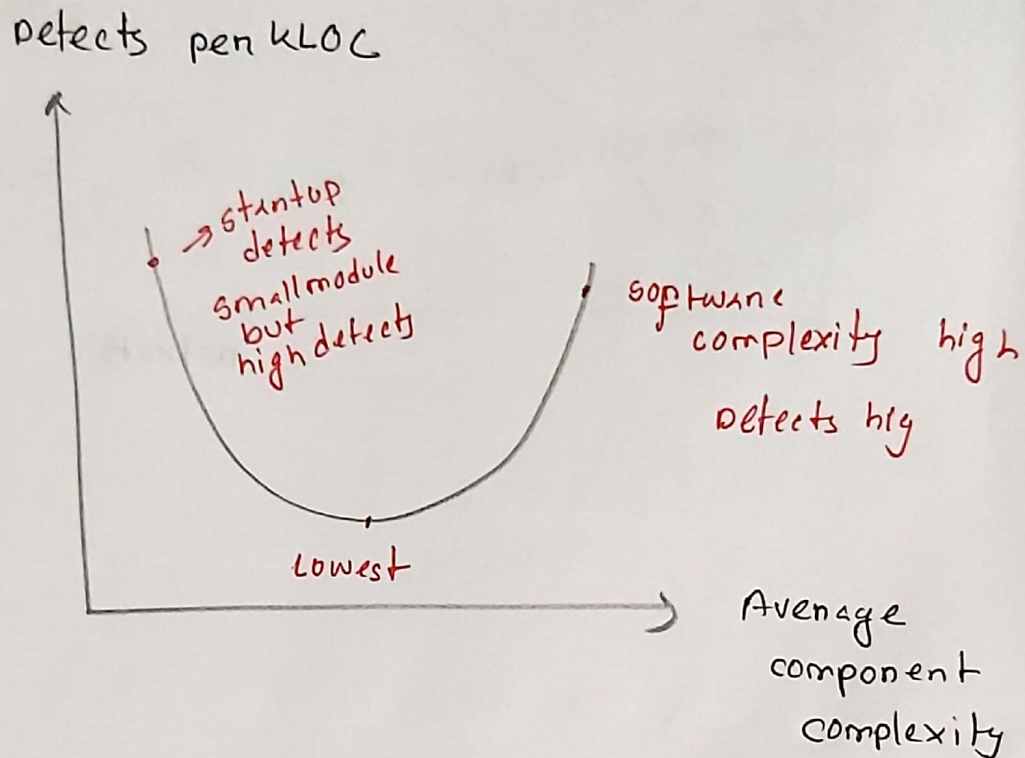 Defects per KLOC
startup
defects
small module
but
high defects
software
complexity high
Defects hig
Lowest
Average
component
complexity